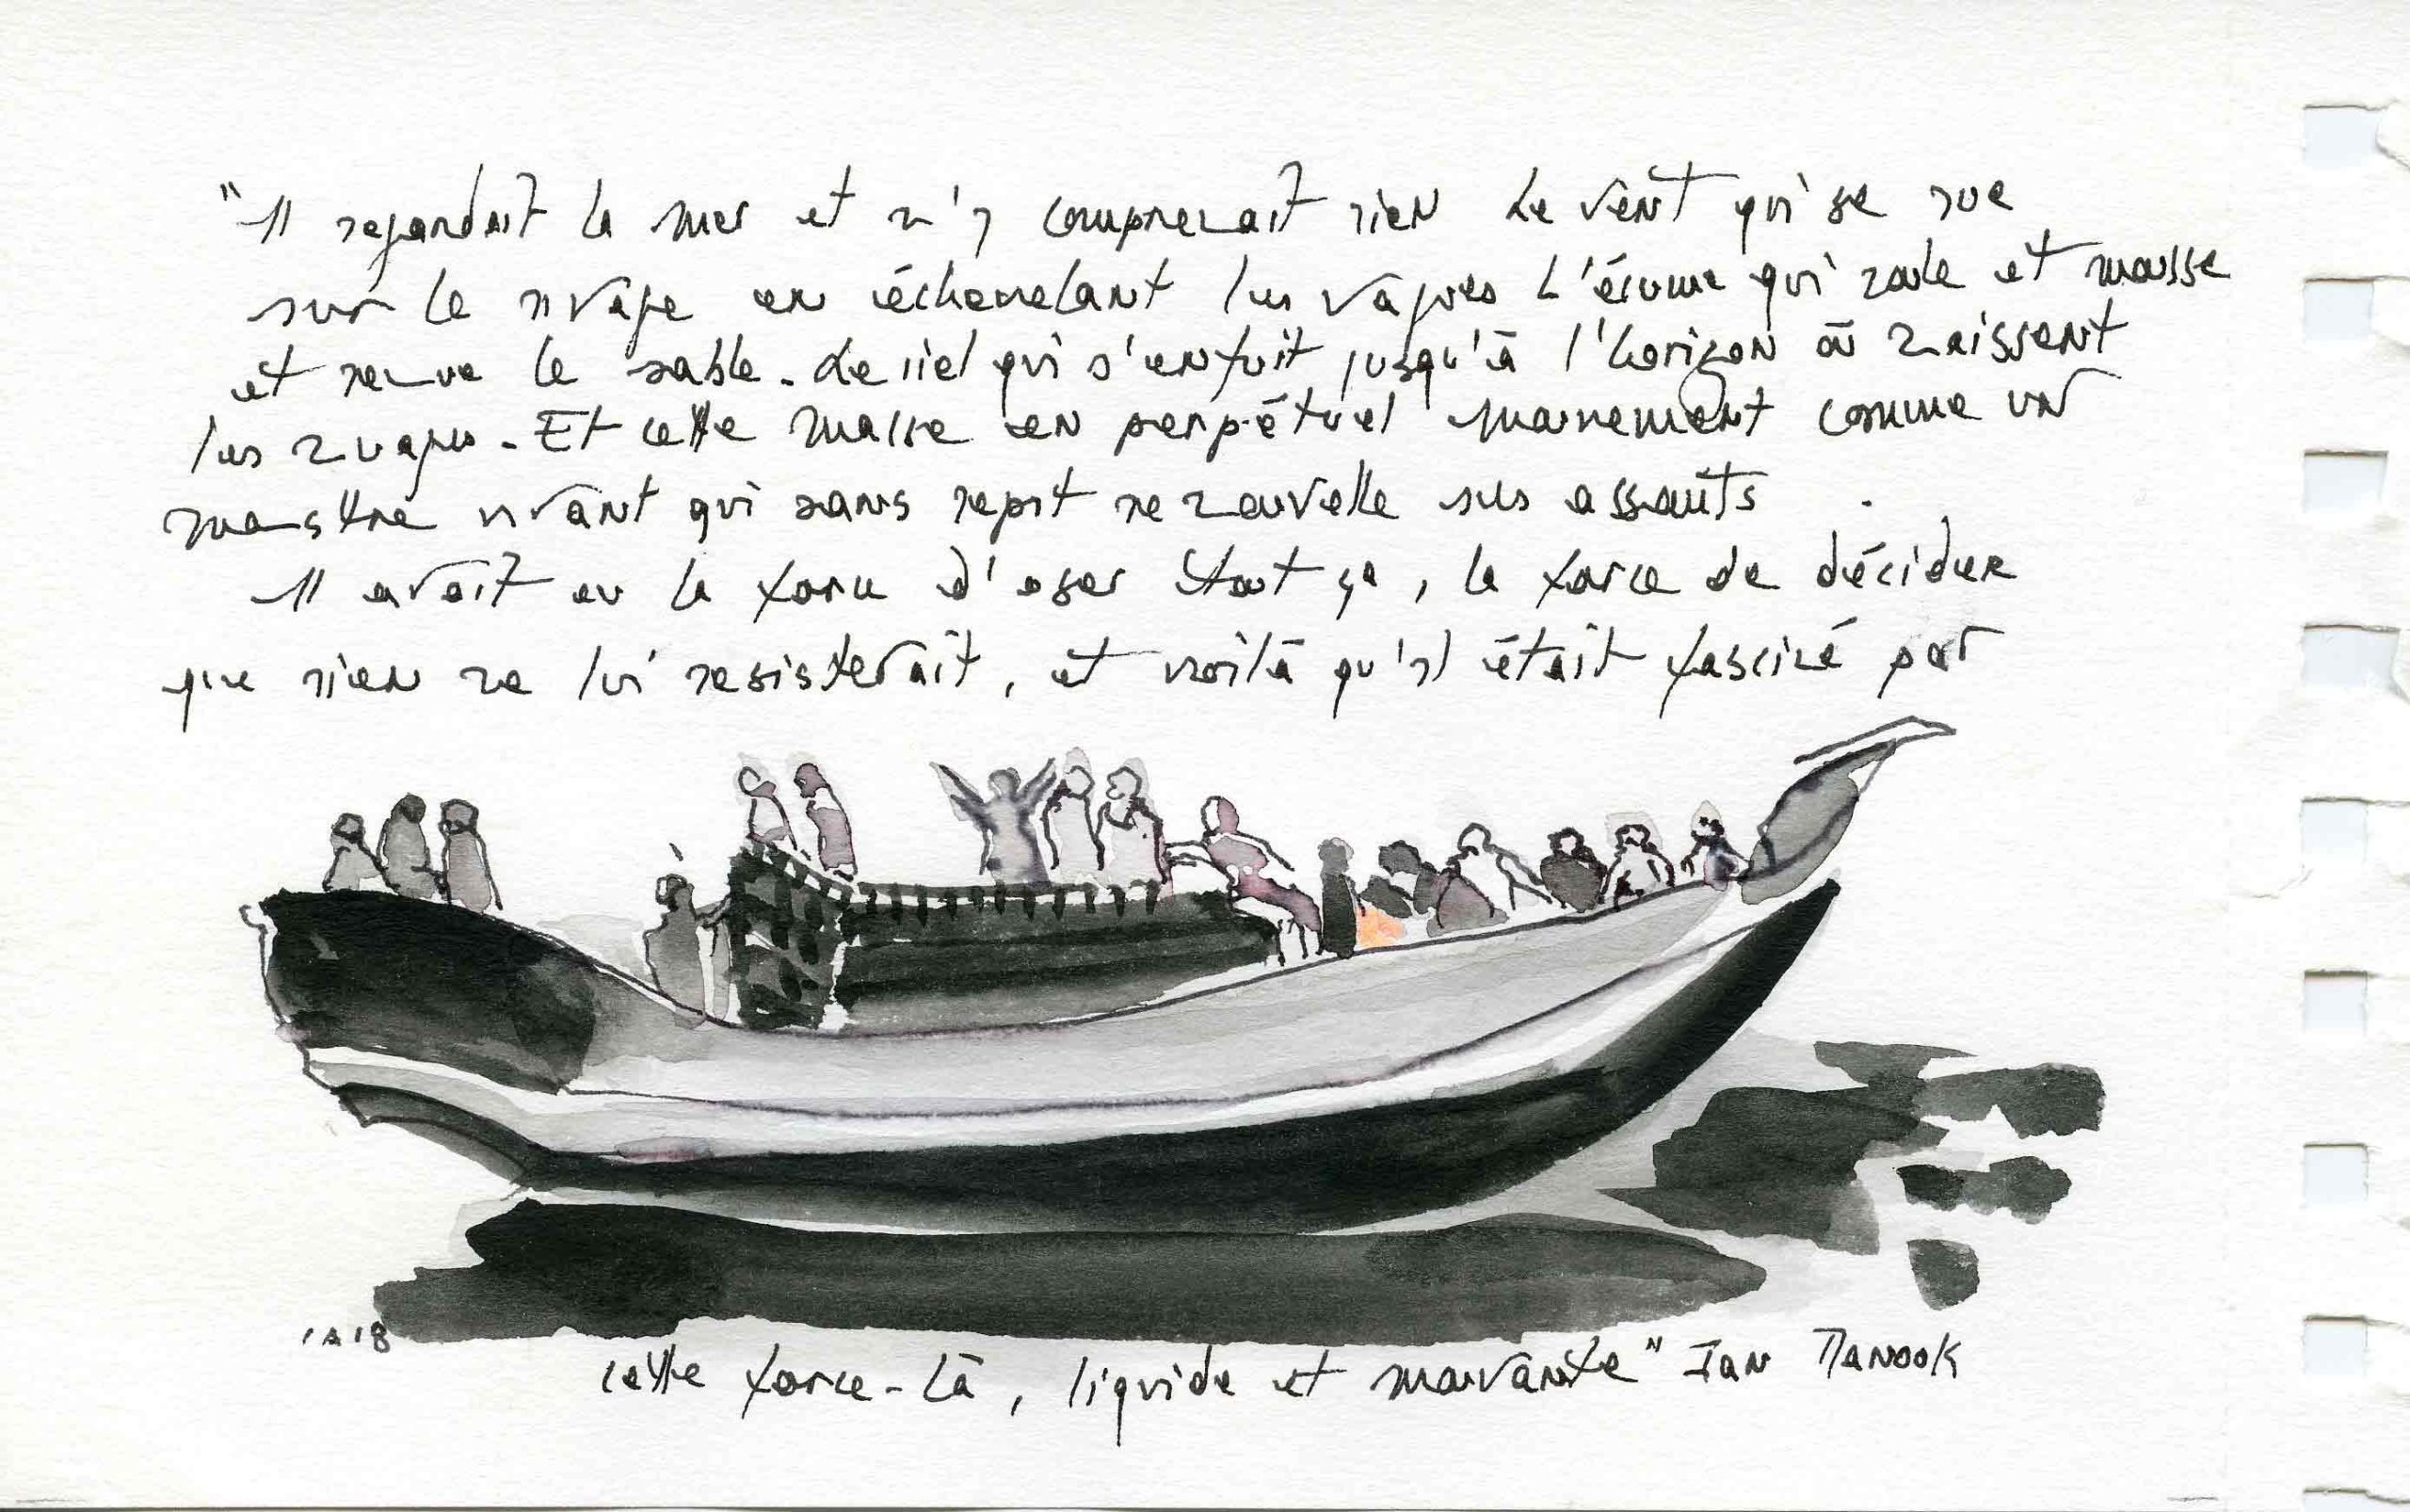 "Il regardait la mer et n'y comprenait rien Le vent qui se rue
sur le rivage en échevelant les vagues L'écume qui roule et mousse
et remue le sable. Le ciel qui s'enfuit jusqu'à l'horizon où naissent
les nuages. Et cette masse en perpétuel mouvement comme un
monstre vivant qui sans repit renouvelle ses assauts.
Il avait eu la force d'oser tout ça, la force de décider
que rien ne lui resisterait, et voilà qu'il était fasciné par
cette force-là, liquide et mouvante" Ian Manook